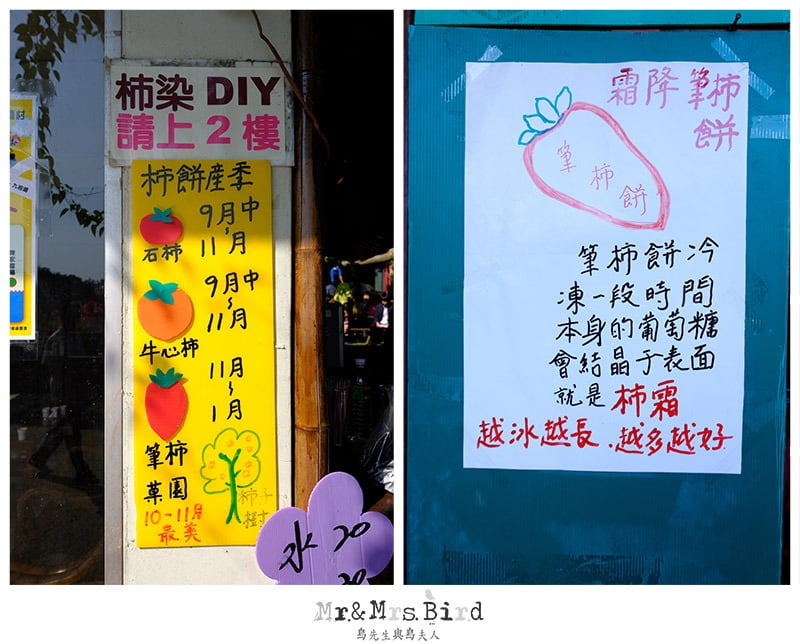 柿染 DIY
請上2樓
柿餅産季
9月中
~
11月
石柿
9月中
~
11月
牛心柿
11月
~
1月
筆柿
菓園
10-11月
最美
柿子
樹
水 20
20
霜降筆柿
餅
筆柿餅
筆柿餅冷
凍一段時間
本身的葡萄糖
會結晶于表面
就是柿霜
越冰越長、越多越好
Mr.&Mrs.Bird
鳥先生與鳥夫人